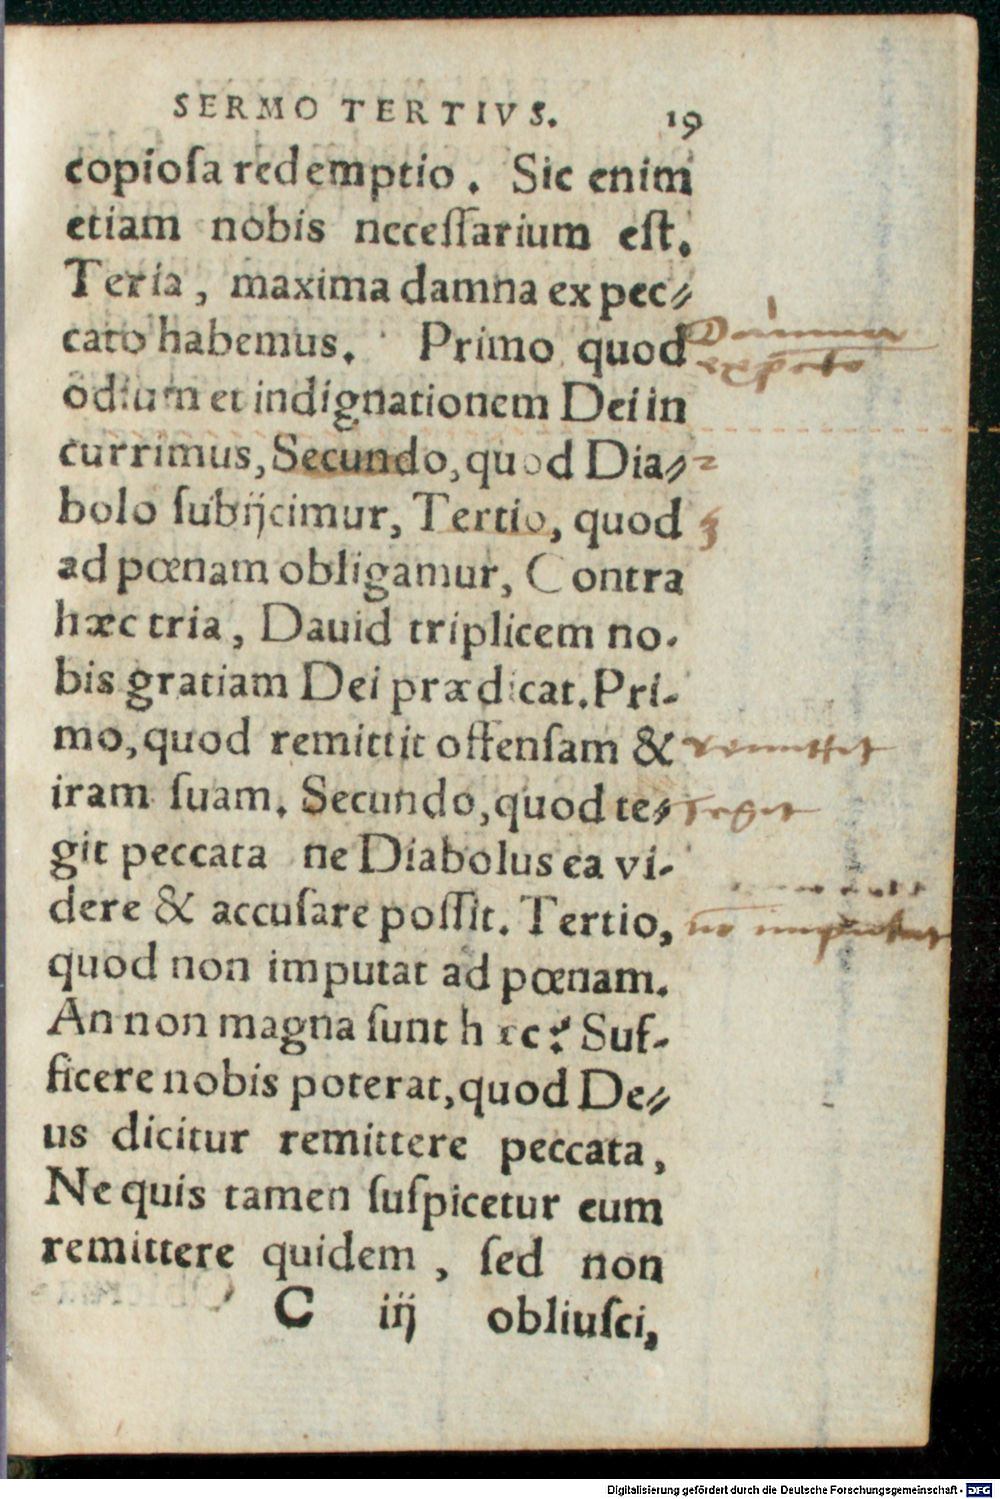 SERMO TERTIVS. 19
copioſa redemptio. Sic enim
etiam nobis neceſſarium eſt.
Teria, maxima damna ex pec⸗
cato habemus. Primo quod
odium et indignationem Dei in
currimus, Secundo, quod Dia⸗ 2
bolo ſubijcimur, Tertio, quod 3
ad pœnam obligamur, Contra
hæc tria, Dauid triplicem no-
bis gratiam Dei prædicat. Pri-
mo, quod remittit offenſam & remittit
iram ſuam. Secundo, quod te⸗ tegit
git peccata ne Diabolus ea vi-
dere & accuſare poſſit. Tertio,
quod non imputat ad pœnam.
An non magna ſunt hæc? Suf-
ficere nobis poterat, quod De⸗
us dicitur remittere peccata,
Ne quis tamen ſuſpicetur eum
remittere quidem, ſed non
C iij obliuſci,
Digitalisierung gefördert durch die Deutsche Forschungsgemeinschaft - DFG